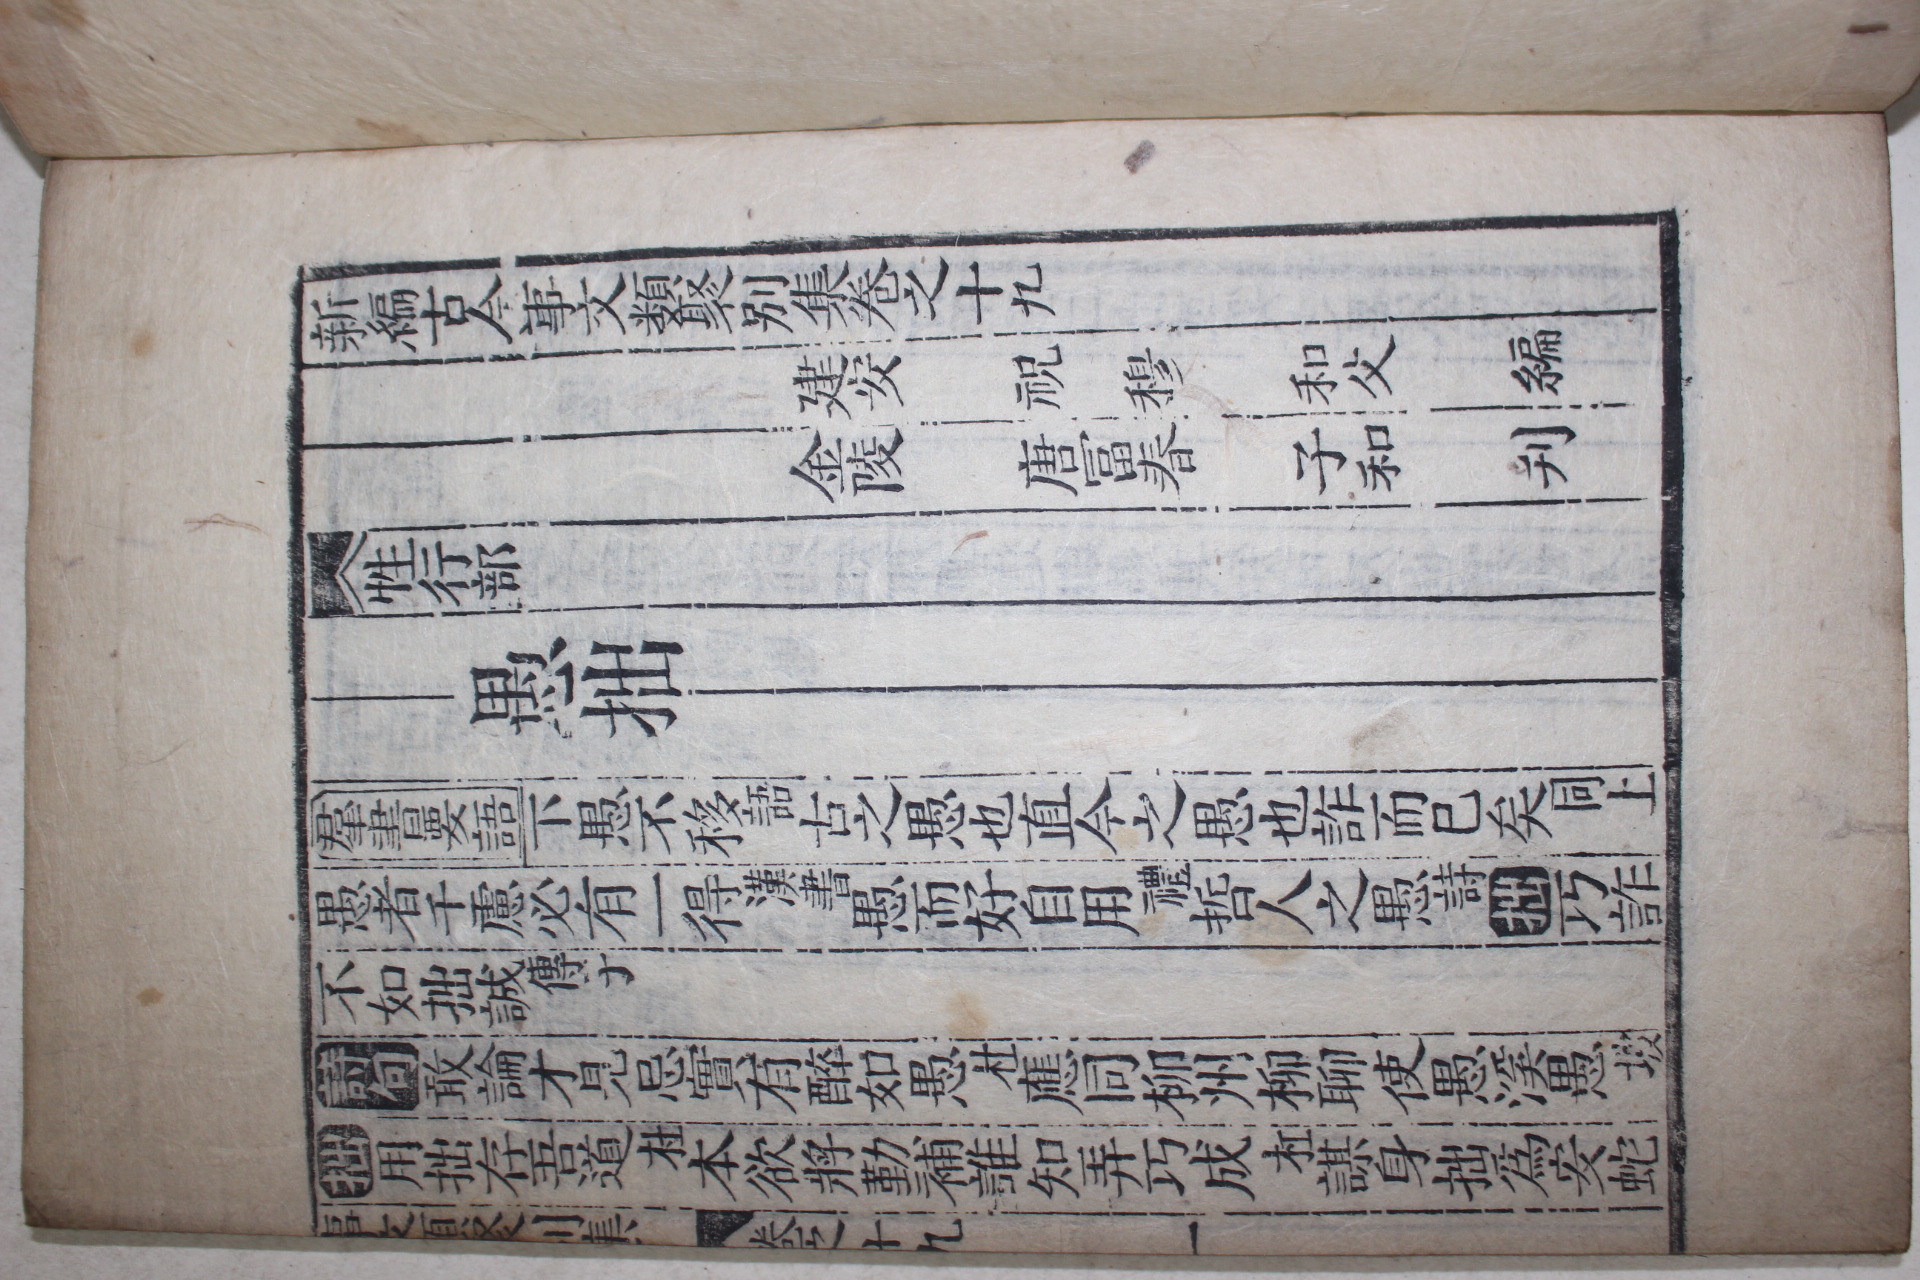 新編古今事文類聚別集卷之十九
建安 祝 穆 和父 編
金陵 唐富春 子和 刋
性行部
愚拙
羣書要語 下愚不移語古之愚也直今之愚也詐而已矣同上
愚者千慮必有一得漢書愚而好自用禮哲人之愚詩 拙 巧詐
不如拙誠傳子
詩句 敢論才見忌實有醉如愚杜應同柳州柳聊使愚溪愚坡
拙 用拙存吾道杜本欲將勤補誰知弄巧成 杜謀身拙為安蛇
事文類聚別集 卷之十九 一